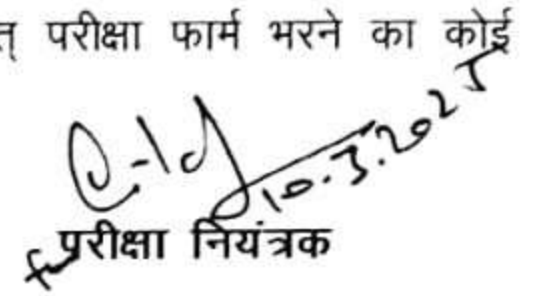 त् परीक्षा फार्म भरने का कोई
10.3.2025
for परीक्षा नियंत्रक